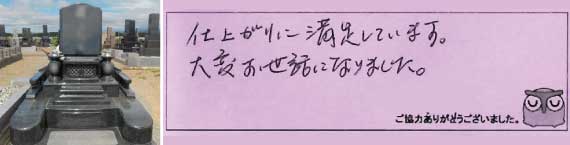 仕上がりに満足しています。
大変お世話になりました。
ご協力ありがとうございました。